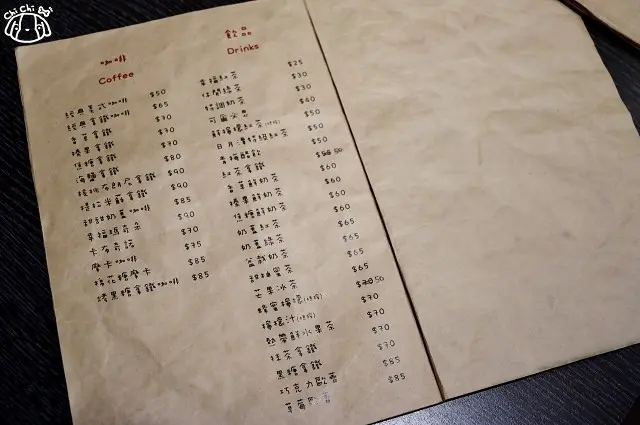 Chi Chi
咖啡
Coffee
經典美式咖啡 $50
經典拿鐵咖啡 $65
香草拿鐵 $70
榛果拿鐵 $70
焦糖拿鐵 $70
海鹽拿鐵 $80
核桃布朗尼拿鐵 $90
提拉米蘇拿鐵 $90
甜甜奶蓋咖啡 $85
幸福瑪奇朵 $90
卡布奇諾 $70
摩卡咖啡 $75
棉花糖摩卡 $85
烤黑糖拿鐵咖啡 $85
飲品
Drinks
幸福紅茶 $25
休閒綠茶 $30
特調奶茶 $30
可爾必思 $40
鮮檸檬紅茶 $50
日月潭特級紅茶 $50
青梅醋飲 $50
紅茶拿鐵 50
香草鮮奶茶 $60
榛果鮮奶茶 $60
焦糖鮮奶茶 $60
奶蓋紅茶 $60
奶蓋綠茶 $60
盆栽奶茶 $65
甜柚蜜茶 $65
芒果冰茶 $65
蜂蜜檸檬 $70 50
檸檬汁 $70
熱帶鮮水果茶 $70
抹茶拿鐵 $70
黑糖拿鐵 $70
巧克力歐蕾 $85
草莓歐蕾 $85